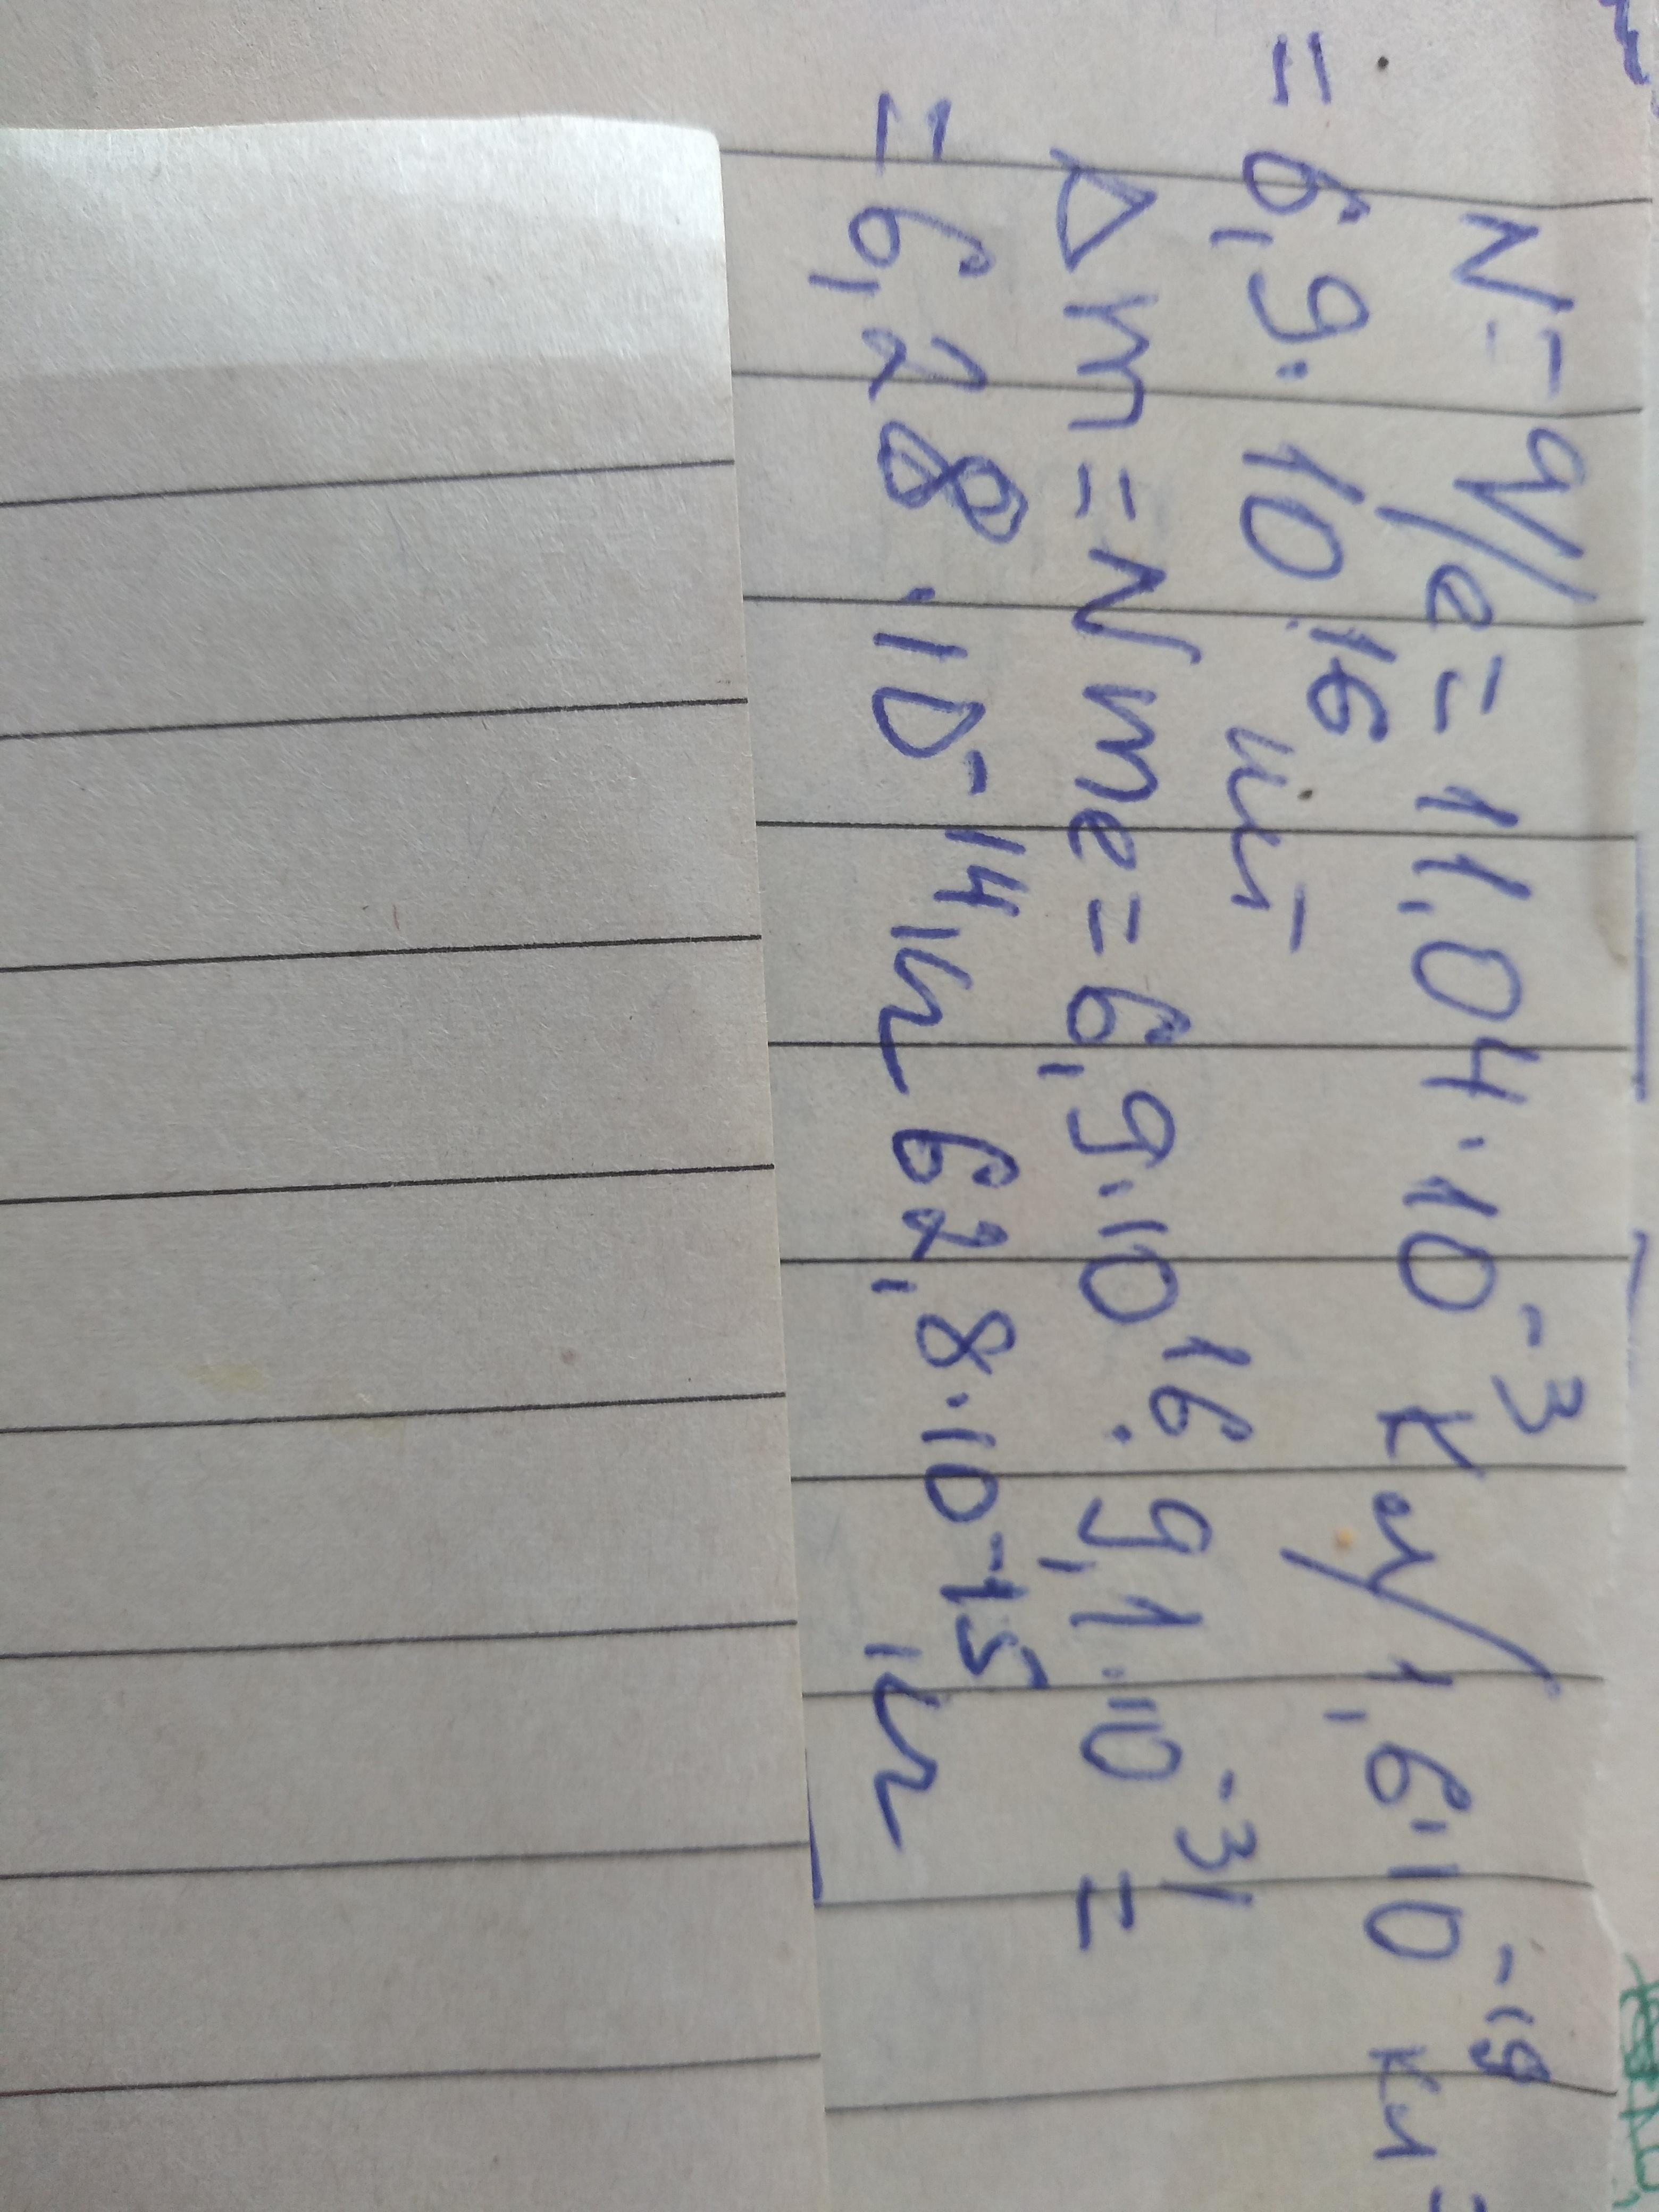 N = q/e = 11,04·10⁻³ Кл/1,6·10⁻¹⁹ Кл =
= 6,9·10¹⁶ шт
Δm = Nme = 6,9·10¹⁶·9,1·10⁻³¹ =
= 6,28·10⁻¹⁴ кг 62,8·10⁻¹⁵ кг